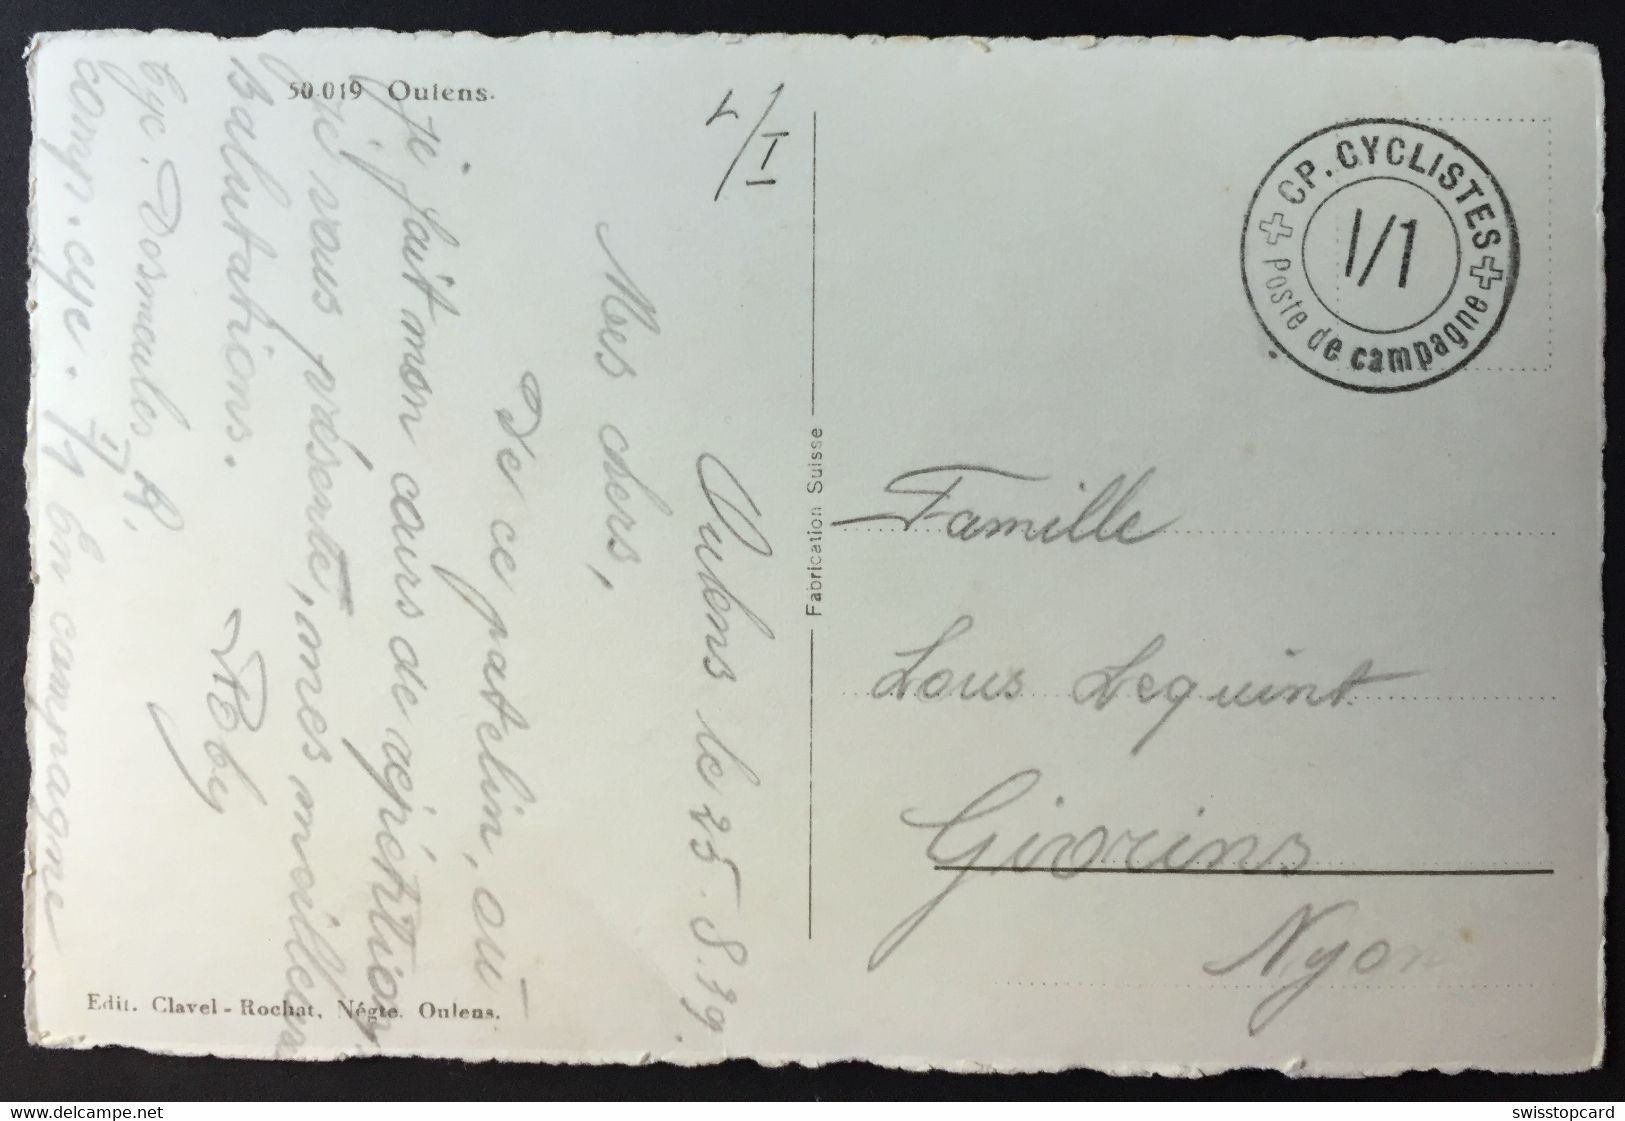 50.019 Oulens.
I
CP. CYCLISTES
I/1
Poste de campagne
Fabrication Suisse
Oulens le 25.8.39
Mes chers,
De ce patelin, où
je fait mon cours de répétition,
je vous présente, mes meilleures
salutations.
Cyc.
comp. cyc. I/1 En campagne
Famille
Lous Lequint
Givrins
Nyon
Edit. Clavel-Rochat, Négte. Oulens.
delcampe.net
swisstopcard